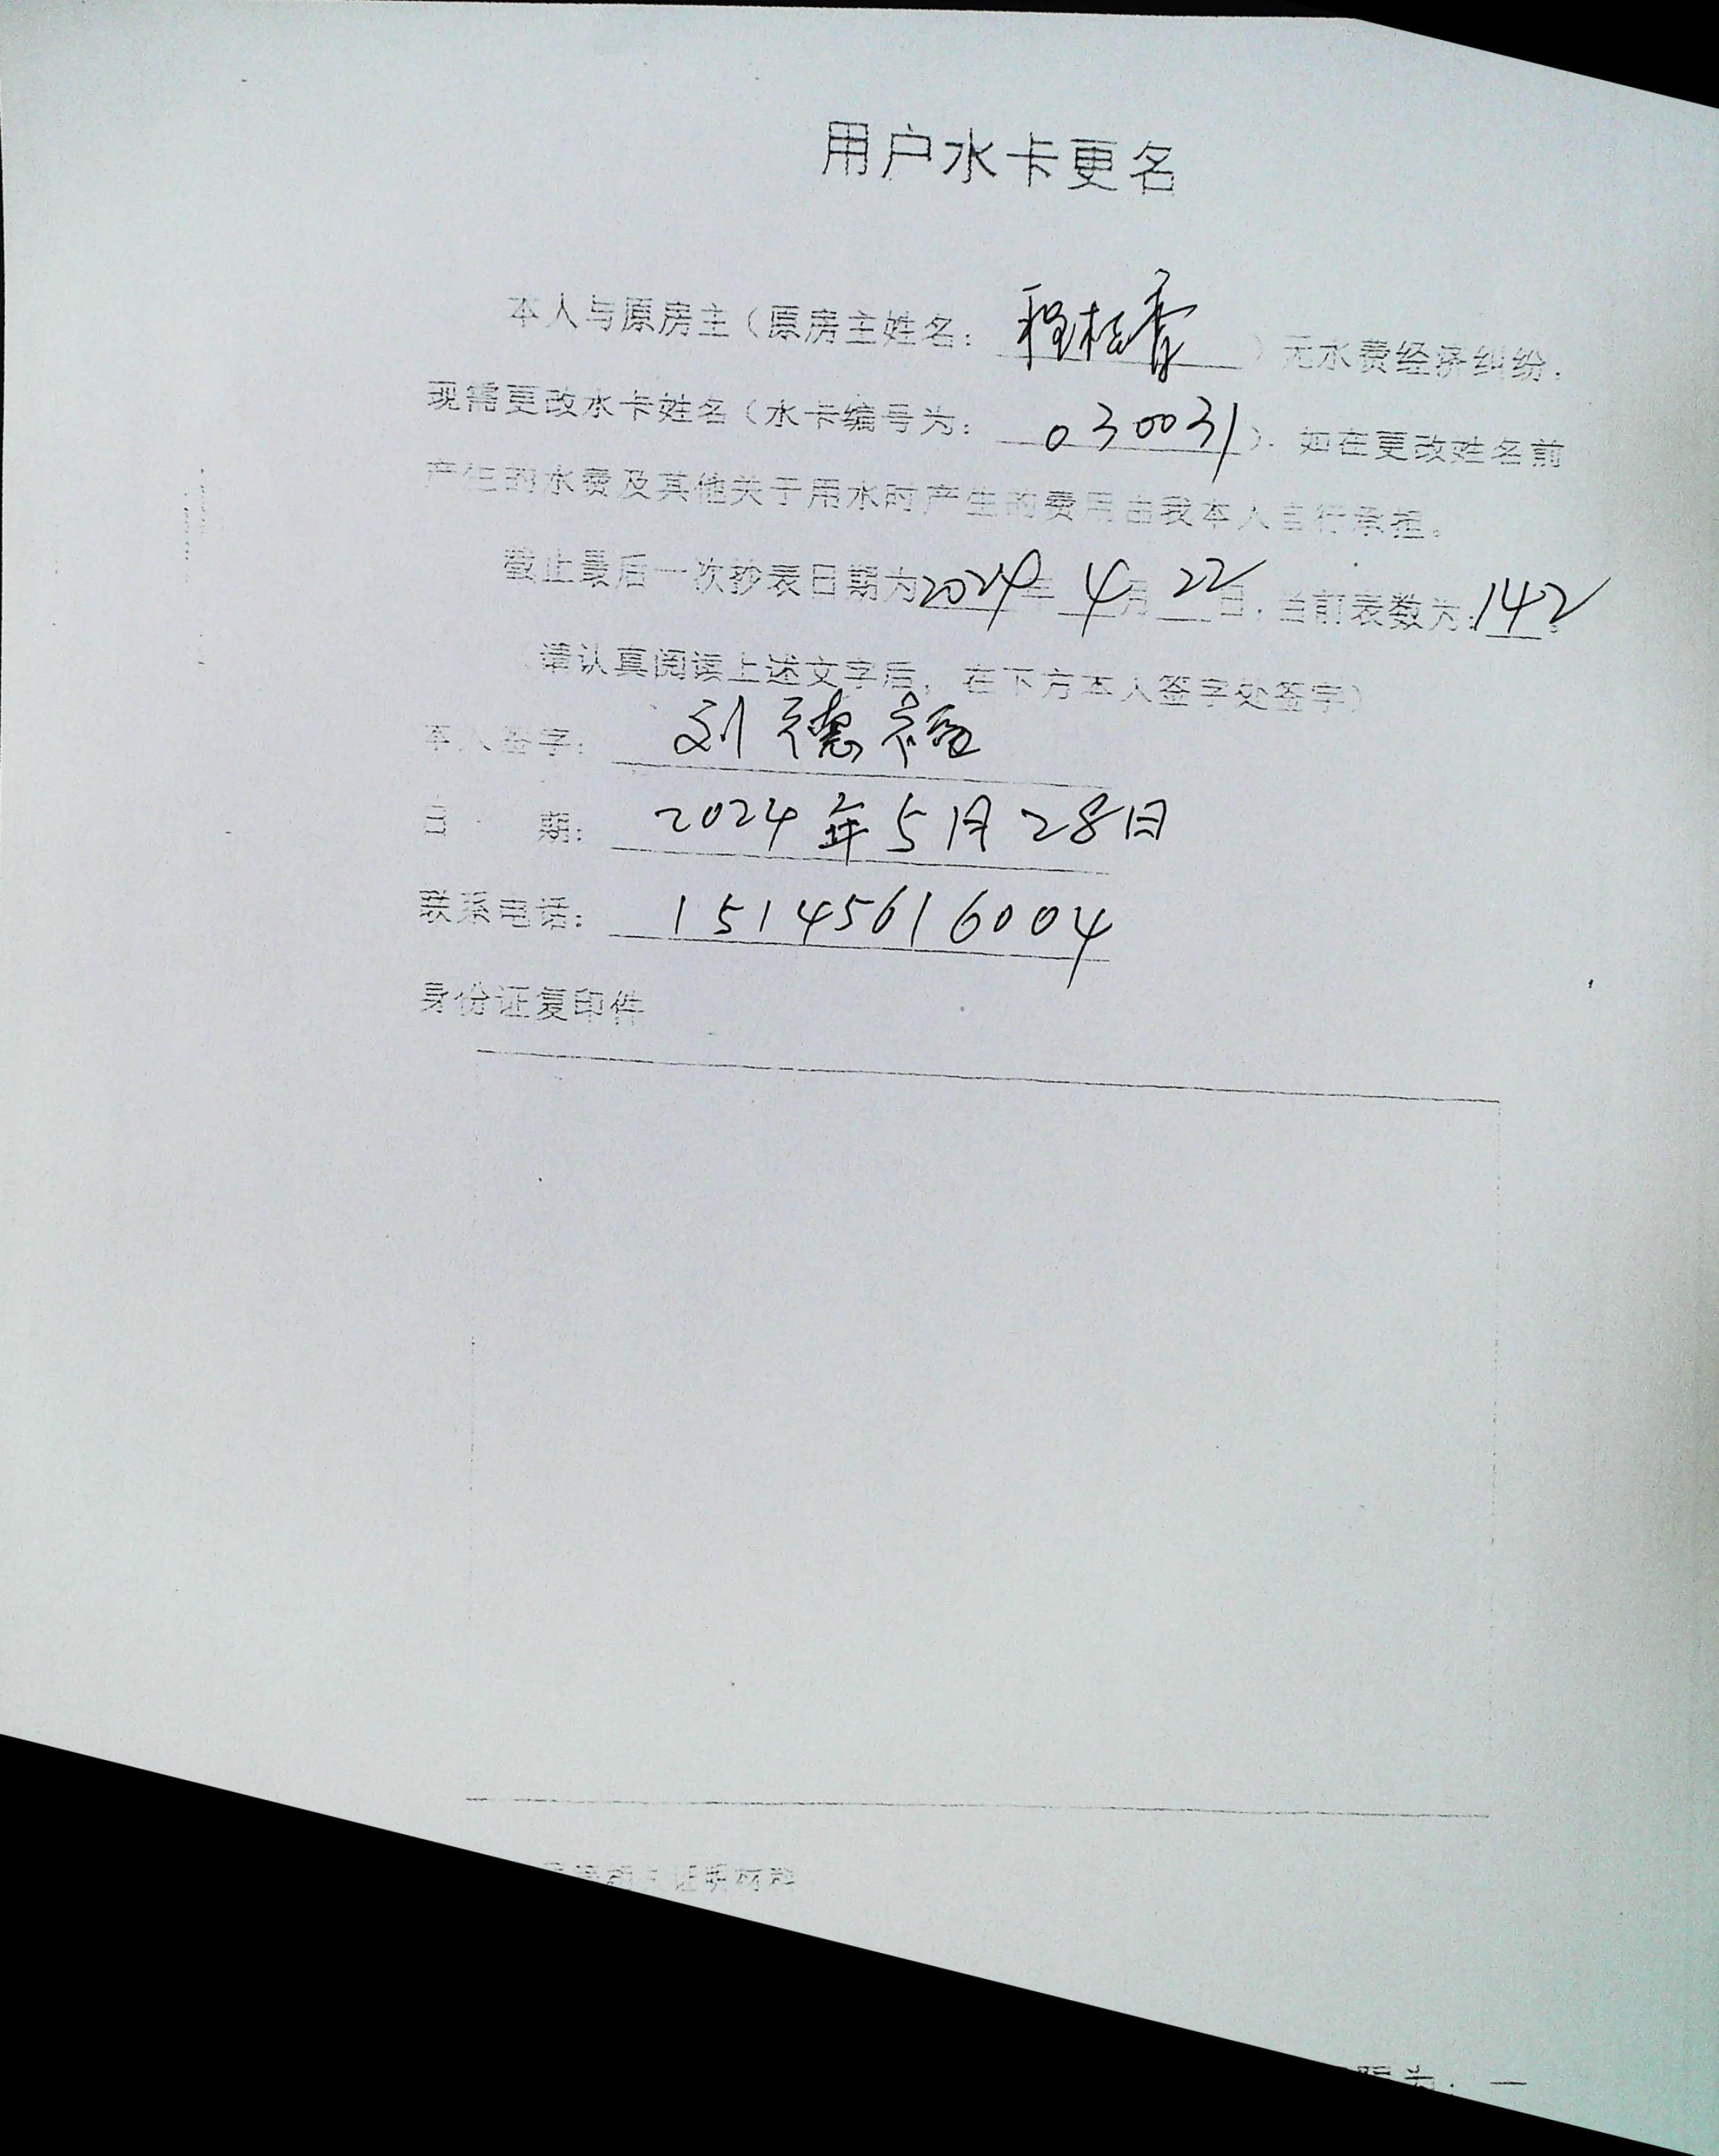 用户水卡更名
本人与原房主（原房主姓名：程桂香）无水费经济纠纷，
现需更改水卡姓名（水卡编号为：030031），如在更改姓名前
产生的水费及其他关于用水时产生的费用由我本人自行承担。
截止最后一次抄表日期为2024年4月22日，当前表数为：142。
（请认真阅读上述文字后，在下方本人签字处签字）
本人签字：刘德福
日期：2024年5月28日
联系电话：15145616004
身份证复印件
相关证明材料
为：一